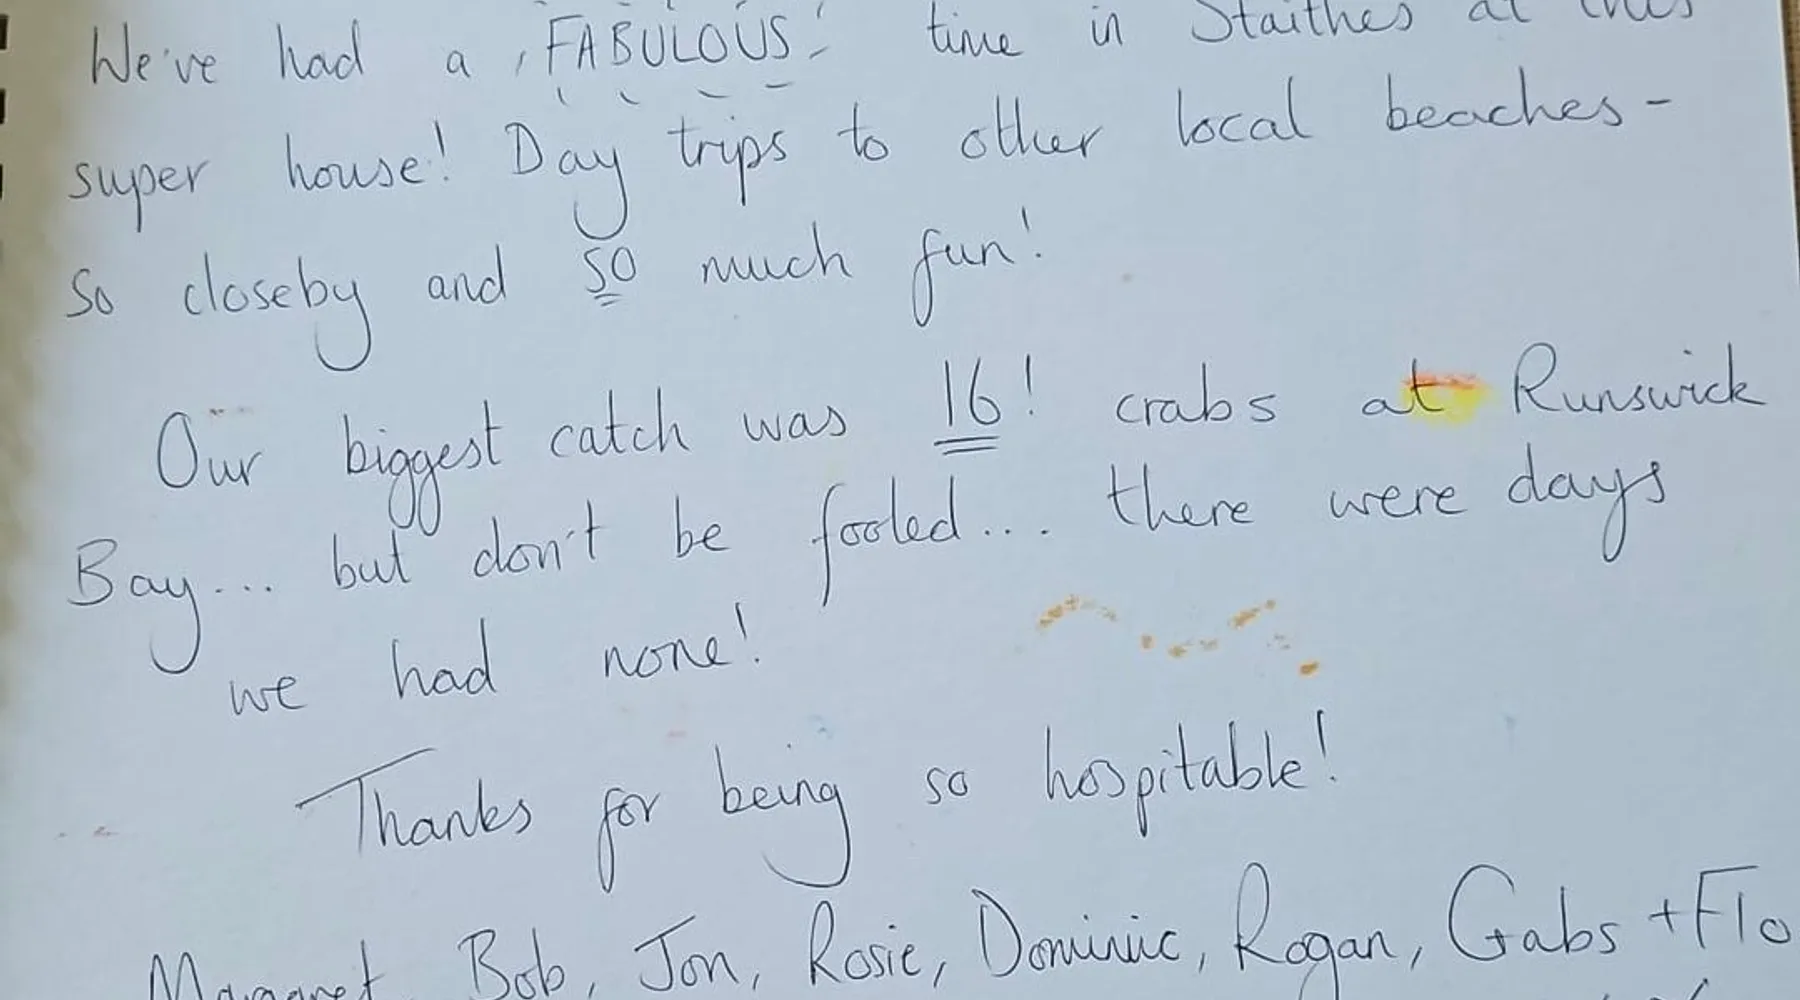 We've had a FABULOUS! time in Staithes at this
super house! Day trips to other local beaches -
so closeby and so much fun!
Our biggest catch was 16! crabs at Runswick
Bay... but don't be fooled... there were days
we had none!
Thanks for being so hospitable!
Margaret, Bob, Jon, Rosie, Dominic, Rogan, Gabs + Flo